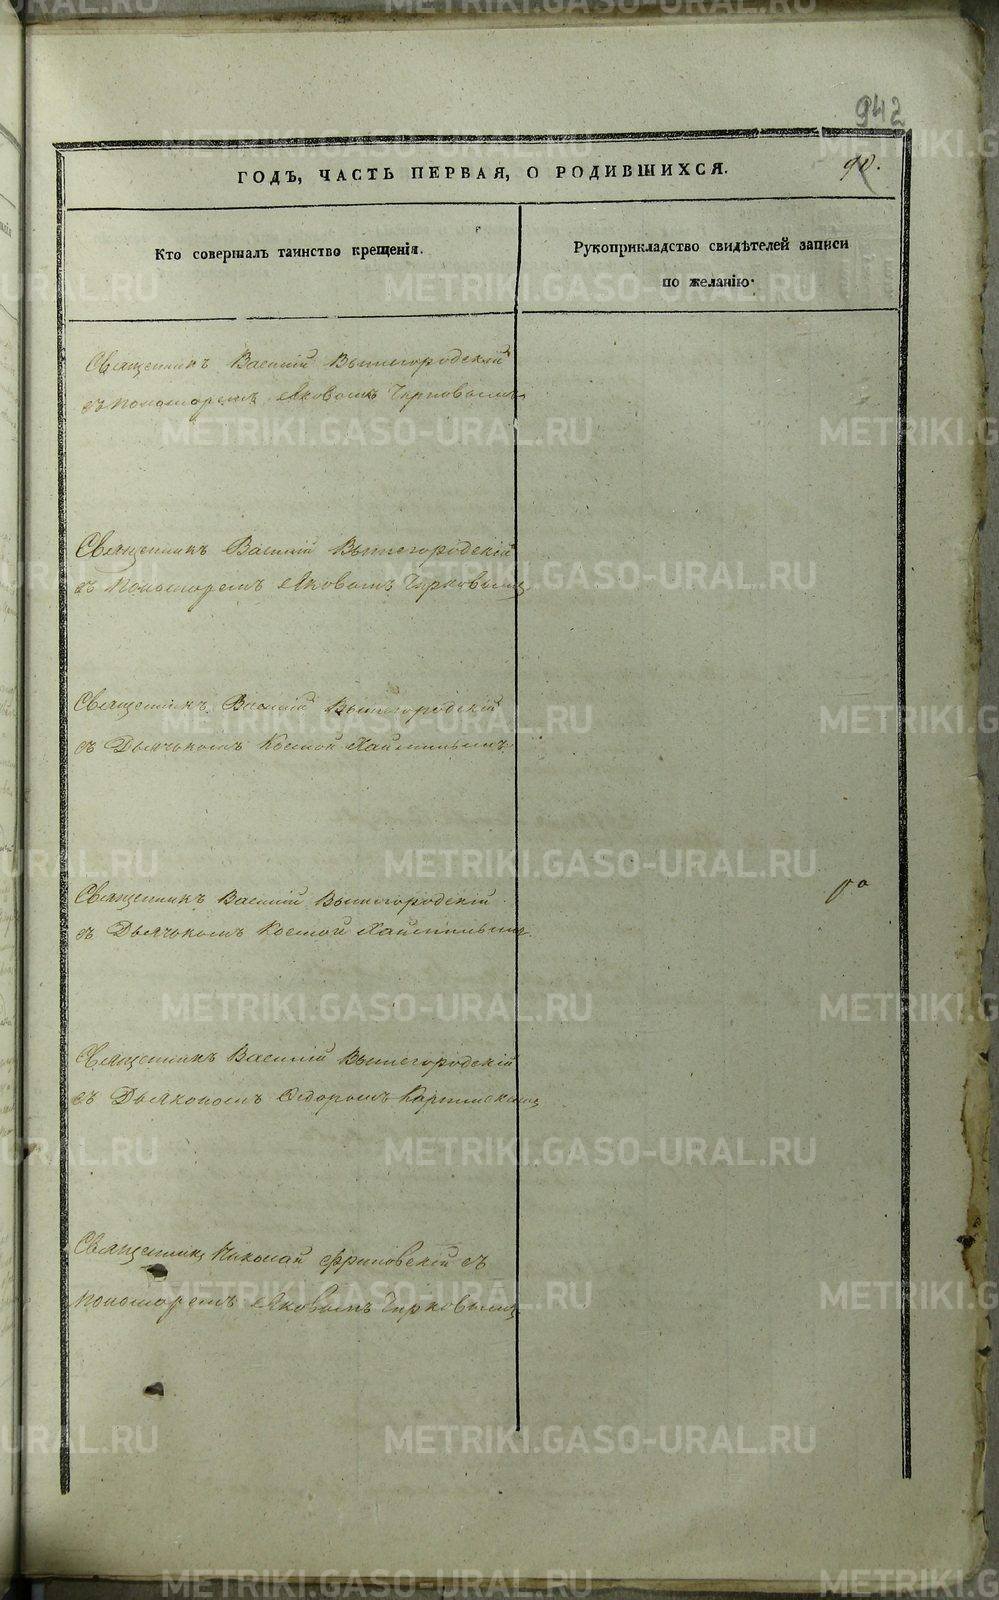 942
90.
ГОДЪ, ЧАСТЬ ПЕРВАЯ, О РОДИВШИХСЯ.
Кто совершалъ таинство крещенія.
Рукоприкладство свидѣтелей записи
по желанію.
Священникъ Василій Вышегородскій
съ пономаремъ Яковомъ Чирковымъ
Священникъ Василій Вышегородскій
съ Пономаремъ Яковомъ Чирковымъ
Священникъ Василій Вышегородскій
съ Дьячькомъ Космой
Священникъ Василій Вышегородскій
съ Дьячькомъ Космой
Священникъ Василій Вышегородскій
съ Дьякономъ Ѳедоромъ Карпинскимъ
Священникъ Николай съ
пономаремъ Яковымъ Чирковымъ
METRIKI.GASO-URAL.RU